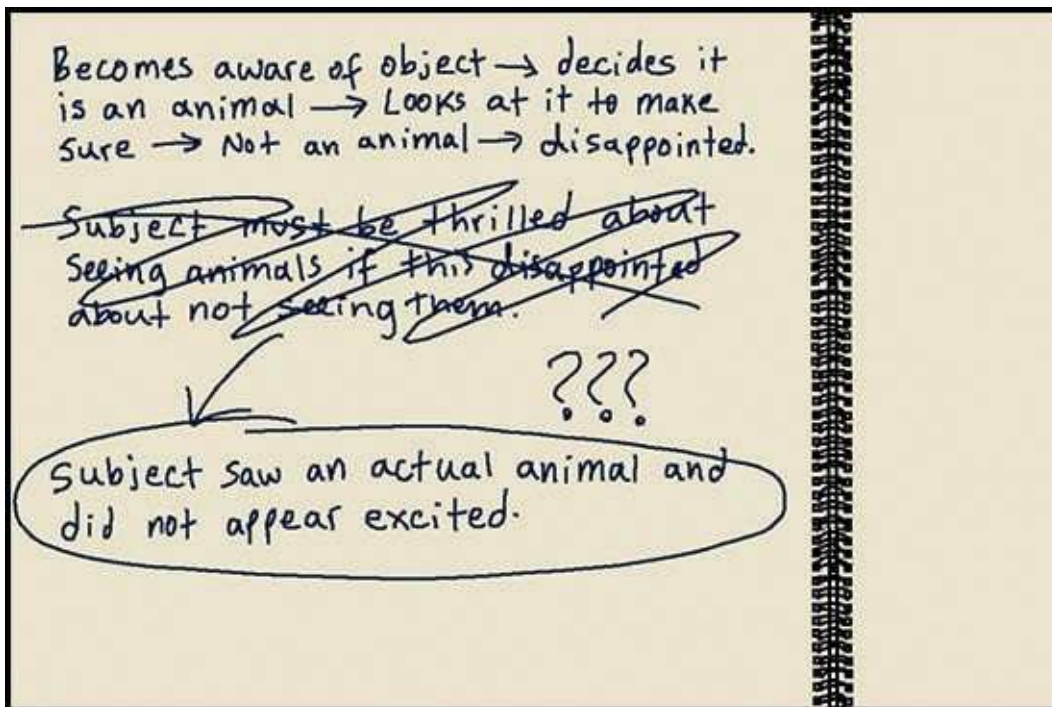 Becomes aware of object → decides it
is an animal → Looks at it to make
sure → Not an animal → disappointed.
Subject must be thrilled about
seeing animals if this disappointed
about not seeing them.
???
Subject saw an actual animal and
did not appear excited.